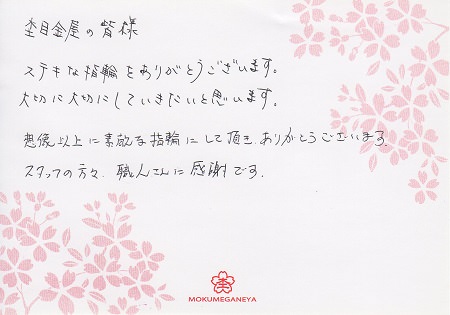 杢目金屋の皆様
ステキな指輪をありがとうございます。
大切に大切にしていきたいと思います。
想像以上に素敵な指輪にして頂き、ありがとうございます。
スタッフの方々、職人さんに感謝です。
杢
MOKUMEGANEYA